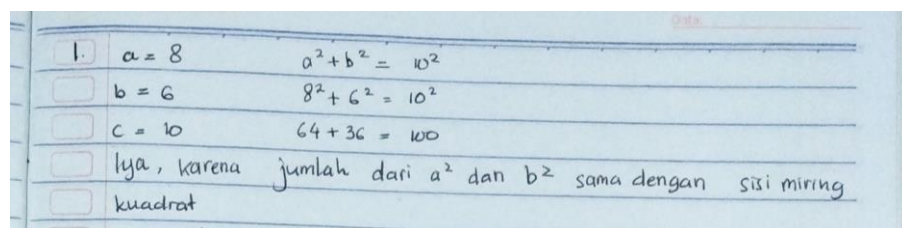 Date
1. a = 8 a² + b² = 10²
b = 6 8² + 6² = 10²
c = 10 64 + 36 = 100
Iya, karena jumlah dari a² dan b² sama dengan sisi miring
kuadrat